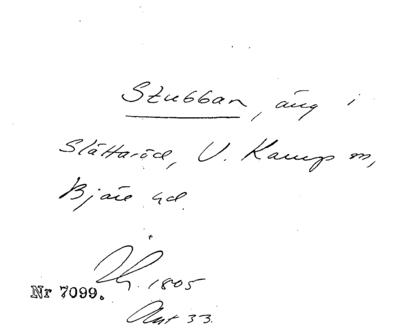 Stubban, äng i
Slättaröd, V. Karup sn,
Bjäre hd.
1805
Nr 7099.
Akt 33.